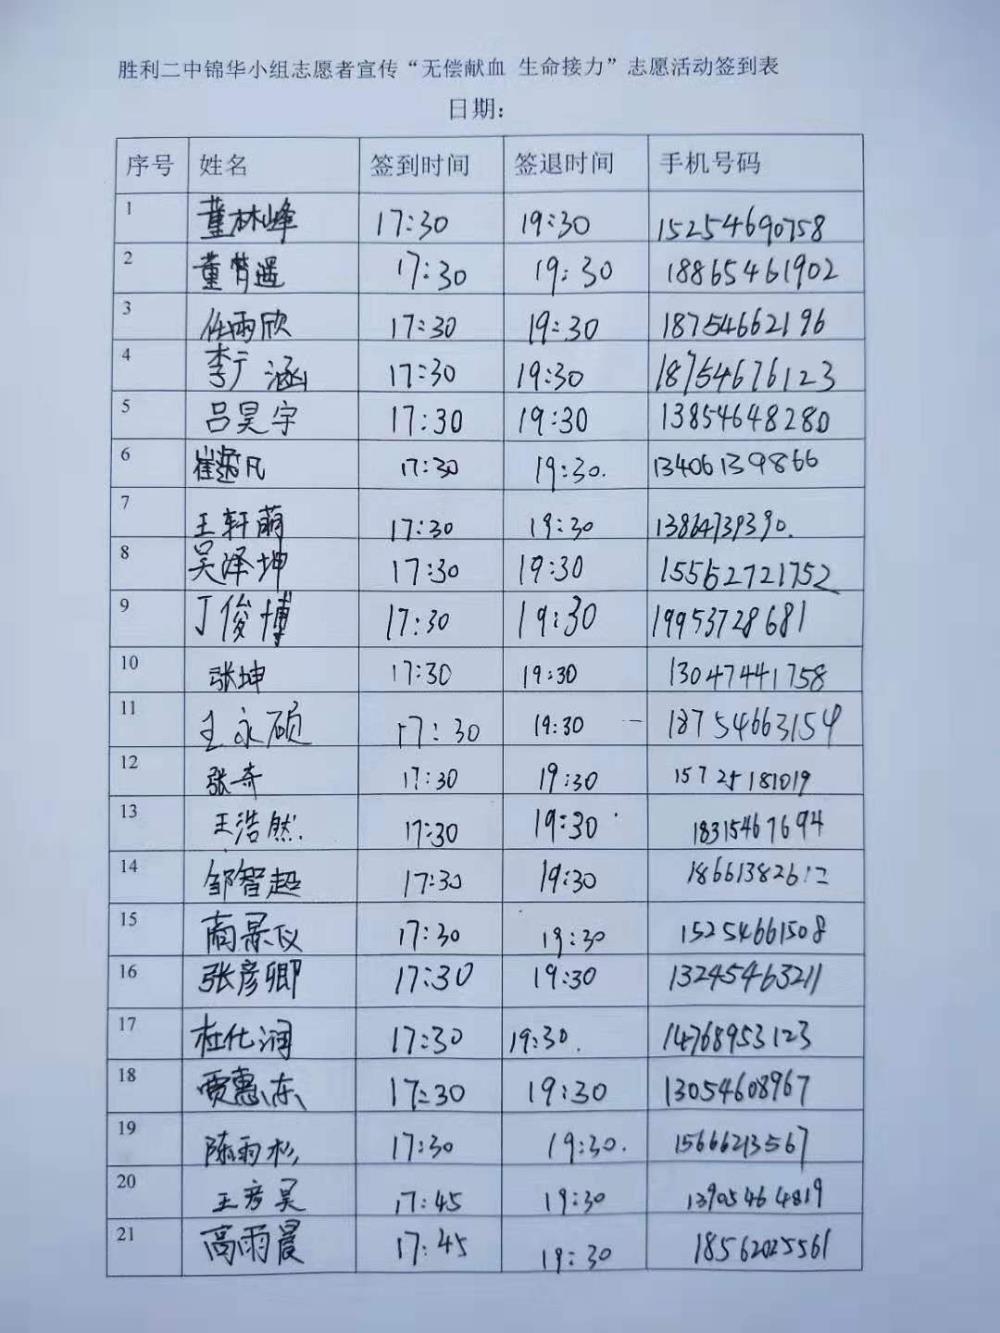 胜利二中锦华小组志愿者宣传“无偿献血 生命接力”志愿活动签到表
日期：
序号 姓名 签到时间 签退时间 手机号码
1 董林峰 17:30 19:30 15254690758
2 董箐遥 17:30 19:30 18865461902
3 任雨欣 17:30 19:30 18754662196
4 李广涵 17:30 19:30 18754676123
5 吕昊宇 17:30 19:30 13854648280
6 崔逸凡 17:30 19:30. 13406139866
7 王轩萌 17:30 19:30 13864739390.
8 吴泽坤 17:30 19:30 15562721752
9 丁俊博 17:30 19:30 19953728681
10 张坤 17:30 19:30 13047441758
11 王永硕 17:30 19:30 18754663154
12 张奇 17:30 19:30 15725181019
13 王浩然. 17:30 19:30 18315467694
14 邹智超 17:30 19:30 18661382612
15 商景仪 17:30 19:30 15254661508
16 张彦卿 17:30 19:30 13245463211
17 杜化润 17:30 19:30. 14768953123
18 贾惠东 17:30 19:30 13054608967
19 陈雨杉 17:30 19:30. 15666213567
20 王彦昊 17:45 19:30 13905464819
21 高雨晨 17:45 19:30 18562025561